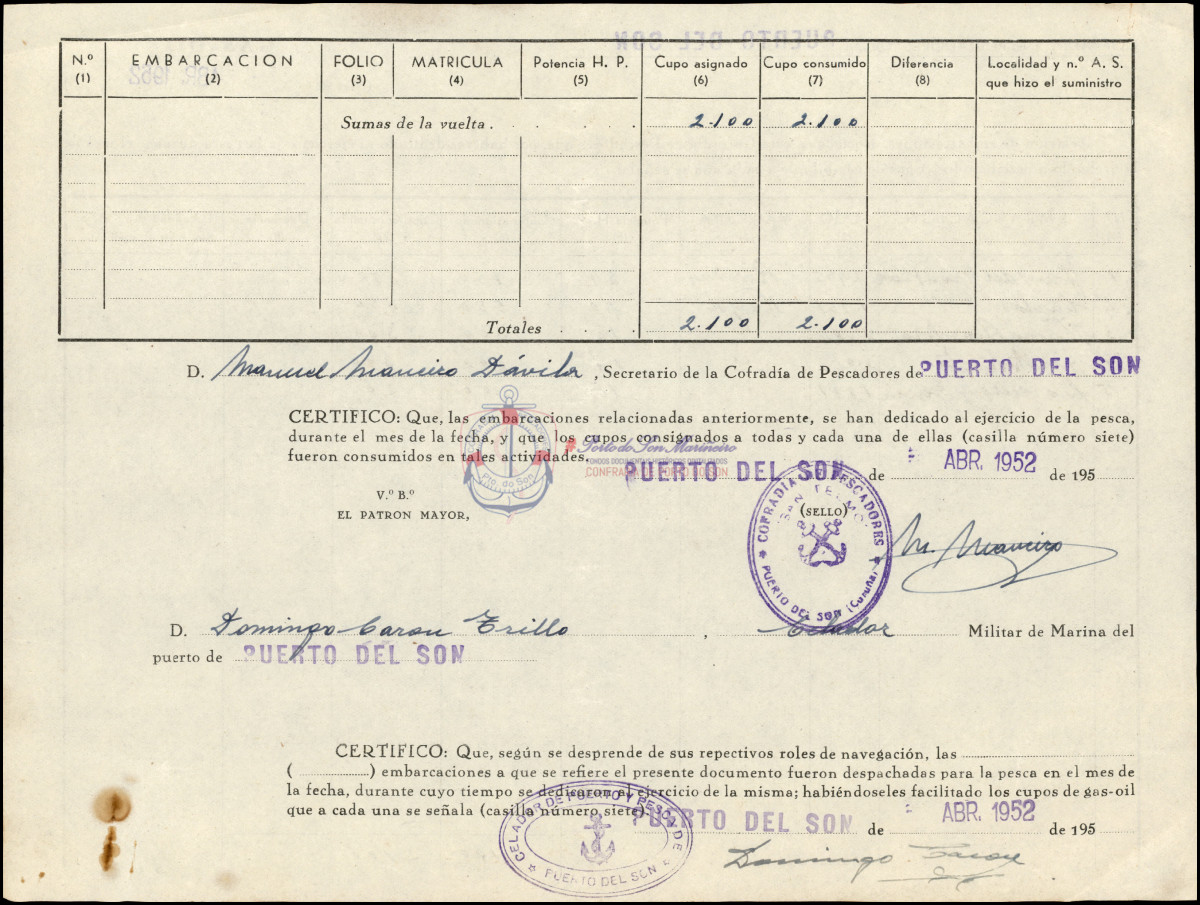 N.º EMBARCACION FOLIO MATRICULA Potencia H. P. Cupo asignado Cupo consumido Diferencia Localidad y n.º A. S.
(1) (2) (3) (4) (5) (6) (7) (8) que hizo el suministro
Sumas de la vuelta . . . . . 2.100 2.100
Totales . . . . 2.100 2.100
D. Manuel Maneiro Dávila , Secretario de la Cofradía de Pescadores de PUERTO DEL SON
CERTIFICO: Que, las embarcaciones relacionadas anteriormente, se han dedicado al ejercicio de la pesca,
durante el mes de la fecha, y que los cupos consignados a todas y cada una de ellas (casilla número siete)
fueron consumidos en tales actividades.
Porto do Son Marineiro
CONFRARÍA DE PORTO DO SON
Pto. do Son
PUERTO DEL SON de ABR. 1952 de 195
V.º B.º
EL PATRON MAYOR,
(SELLO)
COFRADIA DE PESCADORES
"SAN TELMO"
PUERTO DEL SON (Coruña)
M. Maneiro
D. Domingo Carou Trillo , Celador Militar de Marina del
puerto de PUERTO DEL SON
CERTIFICO: Que, según se desprende de sus repectivos roles de navegación, las
( ) embarcaciones a que se refiere el presente documento fueron despachadas para la pesca en el mes de
la fecha, durante cuyo tiempo se dedicaron al ejercicio de la misma; habiéndoseles facilitado los cupos de gas-oil
que a cada una se señala (casilla número siete).
PUERTO DEL SON de ABR. 1952 de 195
CELADOR DE PUERTO Y PESCA DE
PUERTO DEL SON
Domingo Carou